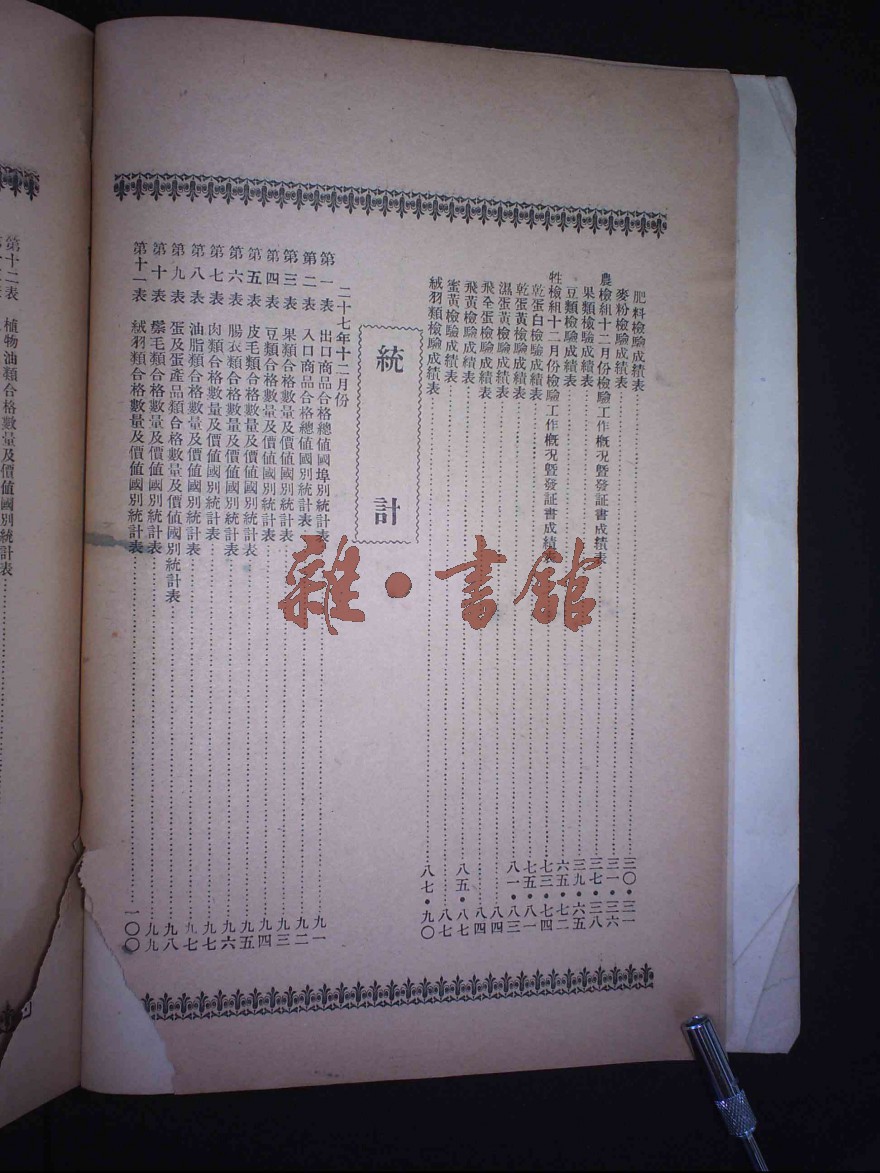 肥料檢驗成績表 三〇・三一
麥粉檢驗成績表 三一・三六
農檢組十二月份檢驗工作概況暨發証書成績表 三七・三八
果類檢驗成績表 三九・六五
豆類檢驗成績表 六五・七二
牲檢組十二月份檢驗工作概況暨發証書成績表 七三・七四
乾蛋白檢驗成績表 七五・八一
乾蛋黃檢驗成績表 八一・八三
濕蛋黃檢驗成績表 八四
飛全蛋檢驗成績表 八四
飛黃檢驗成績表 八五・八七
蜜黃檢驗成績表 八七
絨羽類檢驗成績表 八七・九〇
統計
二十七年十二月份
第一表 出口商品合格總值國埠別統計表 九一
第二表 入口商品合格總值國別統計表 九二
第三表 果類合格數量及價值國別統計表 九三
第四表 豆類合格數量及價值國別統計表 九四
第五表 皮毛類合格數量及價值國別統計表 九五
第六表 腸衣類合格數量及價值國別統計表 九六
第七表 肉類合格數量及價值國別統計表 九七
第八表 油脂類合格數量及價值國別統計表 九七
第九表 蛋及蛋產品類合格數量及價值國別統計表 九八
第十表 鬃毛類合格數量及價值國別統計表 九九
第十一表 絨羽類合格數量及價值國別統計表 一〇〇
第十二表 植物油類合格數量及價值國別統計表
雜・書館